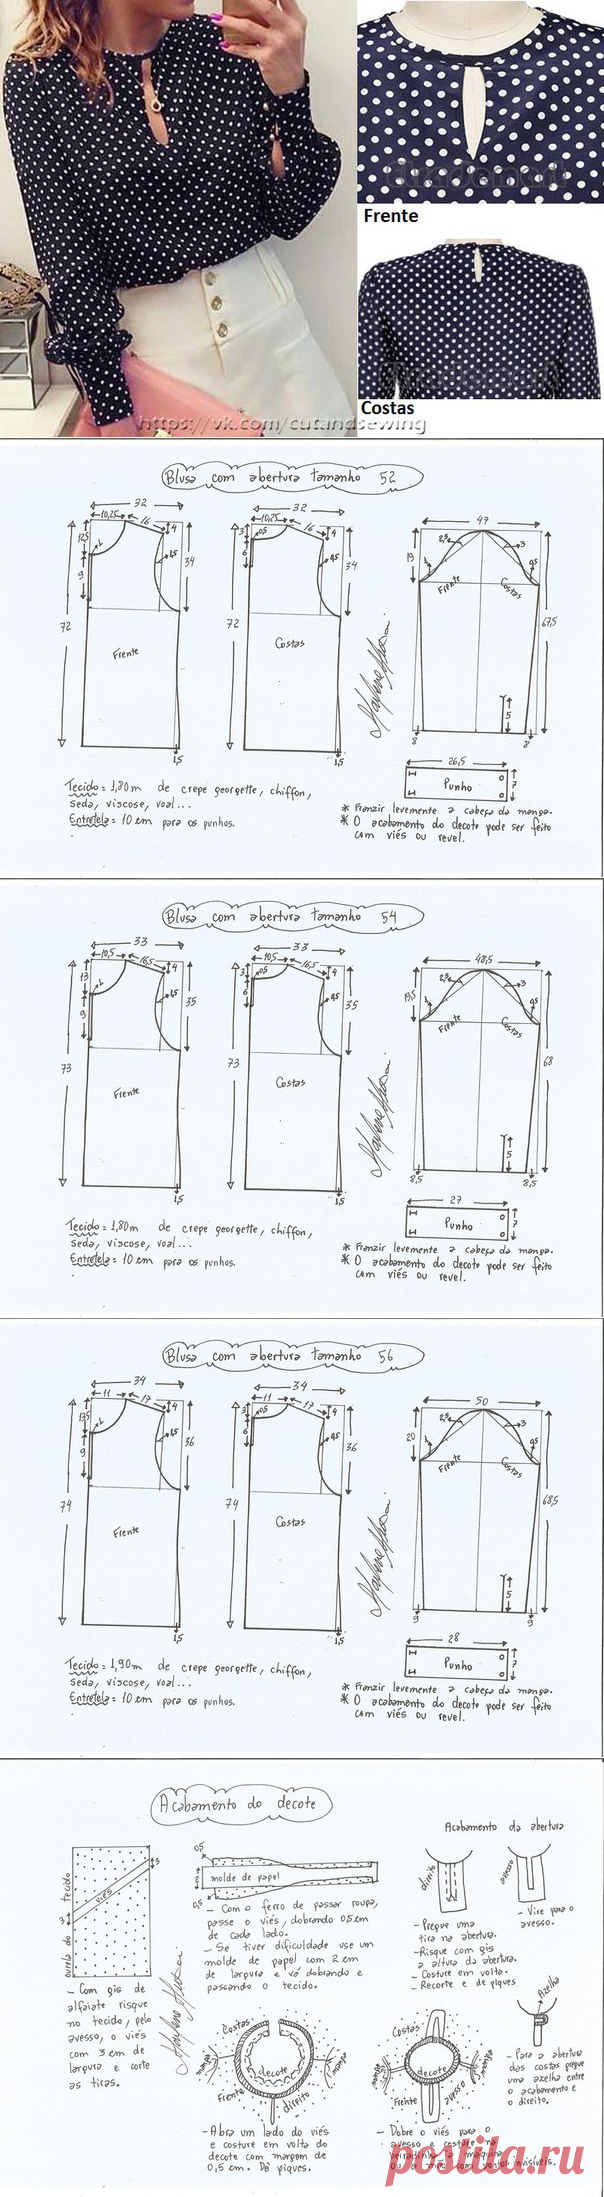 Frente
Costas
https://vk.com/cutandsewing
Blusa com abertura tamanho 52
32
10,25 16 4
12,5
9
1,5
34
72
Frente
1,5
32
10,25 16 4
3 0,5
6
1,5
34
72
Costas
47
19
2,5 3
1 0,5
Frente Costas
67,5
5
8 8
26,5
Punho 7
Tecido = 1,80m de crepe georgette, chiffon,
seda, viscose, voal...
Entretela = 10 cm para os punhos.
* Franzir levemente a cabeça da manga.
* O acabamento do decote pode ser feito
com viés ou revel.
Blusa com abertura tamanho 54
33
10,5 16,5 4
13
9
1,5
35
73
Frente
1,5
33
10,5 16,5 4
3 0,5
6
1,5
35
73
Costas
48,5
19,5
2,5 3
1 0,5
Frente Costas
68
5
8,5 8,5
27
Punho 7
Tecido = 1,80m de crepe georgette, chiffon,
seda, viscose, voal...
Entretela = 10 cm para os punhos.
* Franzir levemente a cabeça da manga.
* O acabamento do decote pode ser feito
com viés ou revel.
Blusa com abertura tamanho 56
34
11 17 4
13,5
9
1,5
36
74
Frente
1,5
34
11 17 4
3 0,5
6
1,5
36
74
Costas
50
20
2,5 3
1 0,5
Frente Costas
68,5
5
9 9
28
Punho 7
Tecido = 1,90m de crepe georgette, chiffon,
seda, viscose, voal...
Entretela = 10 cm para os punhos.
* Franzir levemente a cabeça da manga.
* O acabamento do decote pode ser feito
com viés ou revel.
Acabamento do decote
ourela do tecido
viés
3
3
- Com gis de
alfaiate risque
no tecido, pelo
avesso, o viés
com 3 cm de
largura e corte
as tiras.
0,5
2
0,5
molde de papel
- Com o ferro de passar roupa,
passe o viés, dobrando 0,5 cm
de cada lado.
- Se tiver dificuldade use um
molde de papel com 2 cm
de largura e vá dobrando e
passando o tecido.
Costas
manga
decote
manga
Frente
direito
- Abra um lado do viés
e costure em volta do
decote com margem de
0,5 cm. Dê piques.
Acabamento da abertura
direito
- Pregue uma
tira na abertura.
- Risque com gis
a altura da abertura.
- Costure em volta.
- Recorte e dê piques
avesso
- Vire para o
avesso.
Costas
manga
decote
manga
Frente
avesso
- Dobre o viés para o
avesso e costure na
Azelha
- Para a abertura
das costas pregue
uma azelha entre
o acabamento e
o direito.
postila.ru